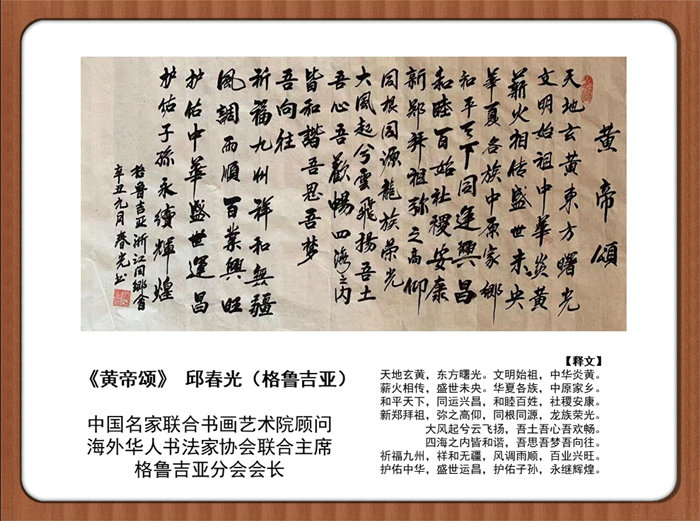 黄帝頌
天地玄黄東方曙光
文明始祖中华炎黄
薪火相传盛世未央
華夏各族中原家鄉
和平天下同運興昌
和睦百姓社稷安康
新郑拜祖弥之高仰
同根同源龍族荣光
大風起兮雲飛揚吾土
吾心吾歡暢四海之内
皆和諧吾思吾梦
吾向往
祈福九州祥和無疆
風調雨順百業興旺
护佑中華盛世運昌
护佑子孫永續輝煌
格鲁吉亚浙江同鄉會
辛丑九月春光书
《黄帝颂》 邱春光（格鲁吉亚）
中国名家联合书画艺术院顾问
海外华人书法家协会联合主席
格鲁吉亚分会会长
【释文】
天地玄黄，东方曙光。文明始祖，中华炎黄。
薪火相传，盛世未央。华夏各族，中原家乡。
和平天下，同运兴昌，和睦百姓，社稷安康。
新郑拜祖，弥之高仰，同根同源，龙族荣光。
大风起兮云飞扬，吾土吾心吾欢畅。
四海之内皆和谐，吾思吾梦吾向往。
祈福九州，祥和无疆，风调雨顺，百业兴旺。
护佑中华，盛世运昌，护佑子孙，永继辉煌。